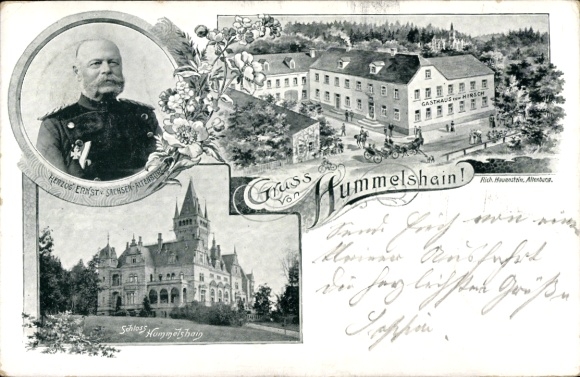 HERZOG ERNST V. SACHSEN-ALTENBURG
GASTHAUS ZUM HIRSCH
Gruss
von Hummelshain!
Rich. Hauenstein, Altenburg.
Schloss
Hummelshain
Send Euch von
kleiner Ausfahrt
die herzlichsten Grüße